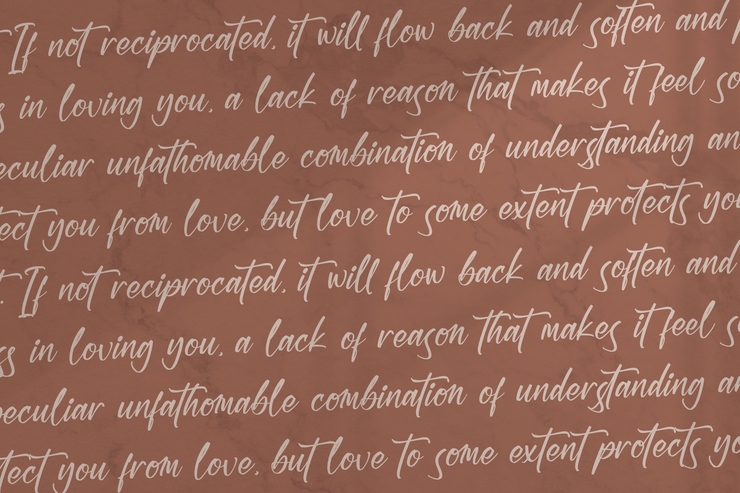 If not reciprocated, it will flow back and soften and
in loving you, a lack of reason that makes it feel so
eculiar unfathomable combination of understanding an
tect you from love, but love to some extent protects yo
t. If not reciprocated, it will flow back and soften and
ss in loving you, a lack of reason that makes it feel s
peculiar unfathomable combination of understanding a
tect you from love, but love to some extent protects yo